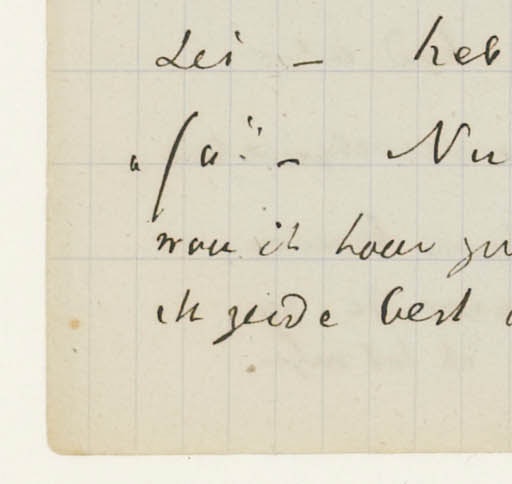 zei – heb
„Ja" – Nu
wou ik haar
ik zeide best